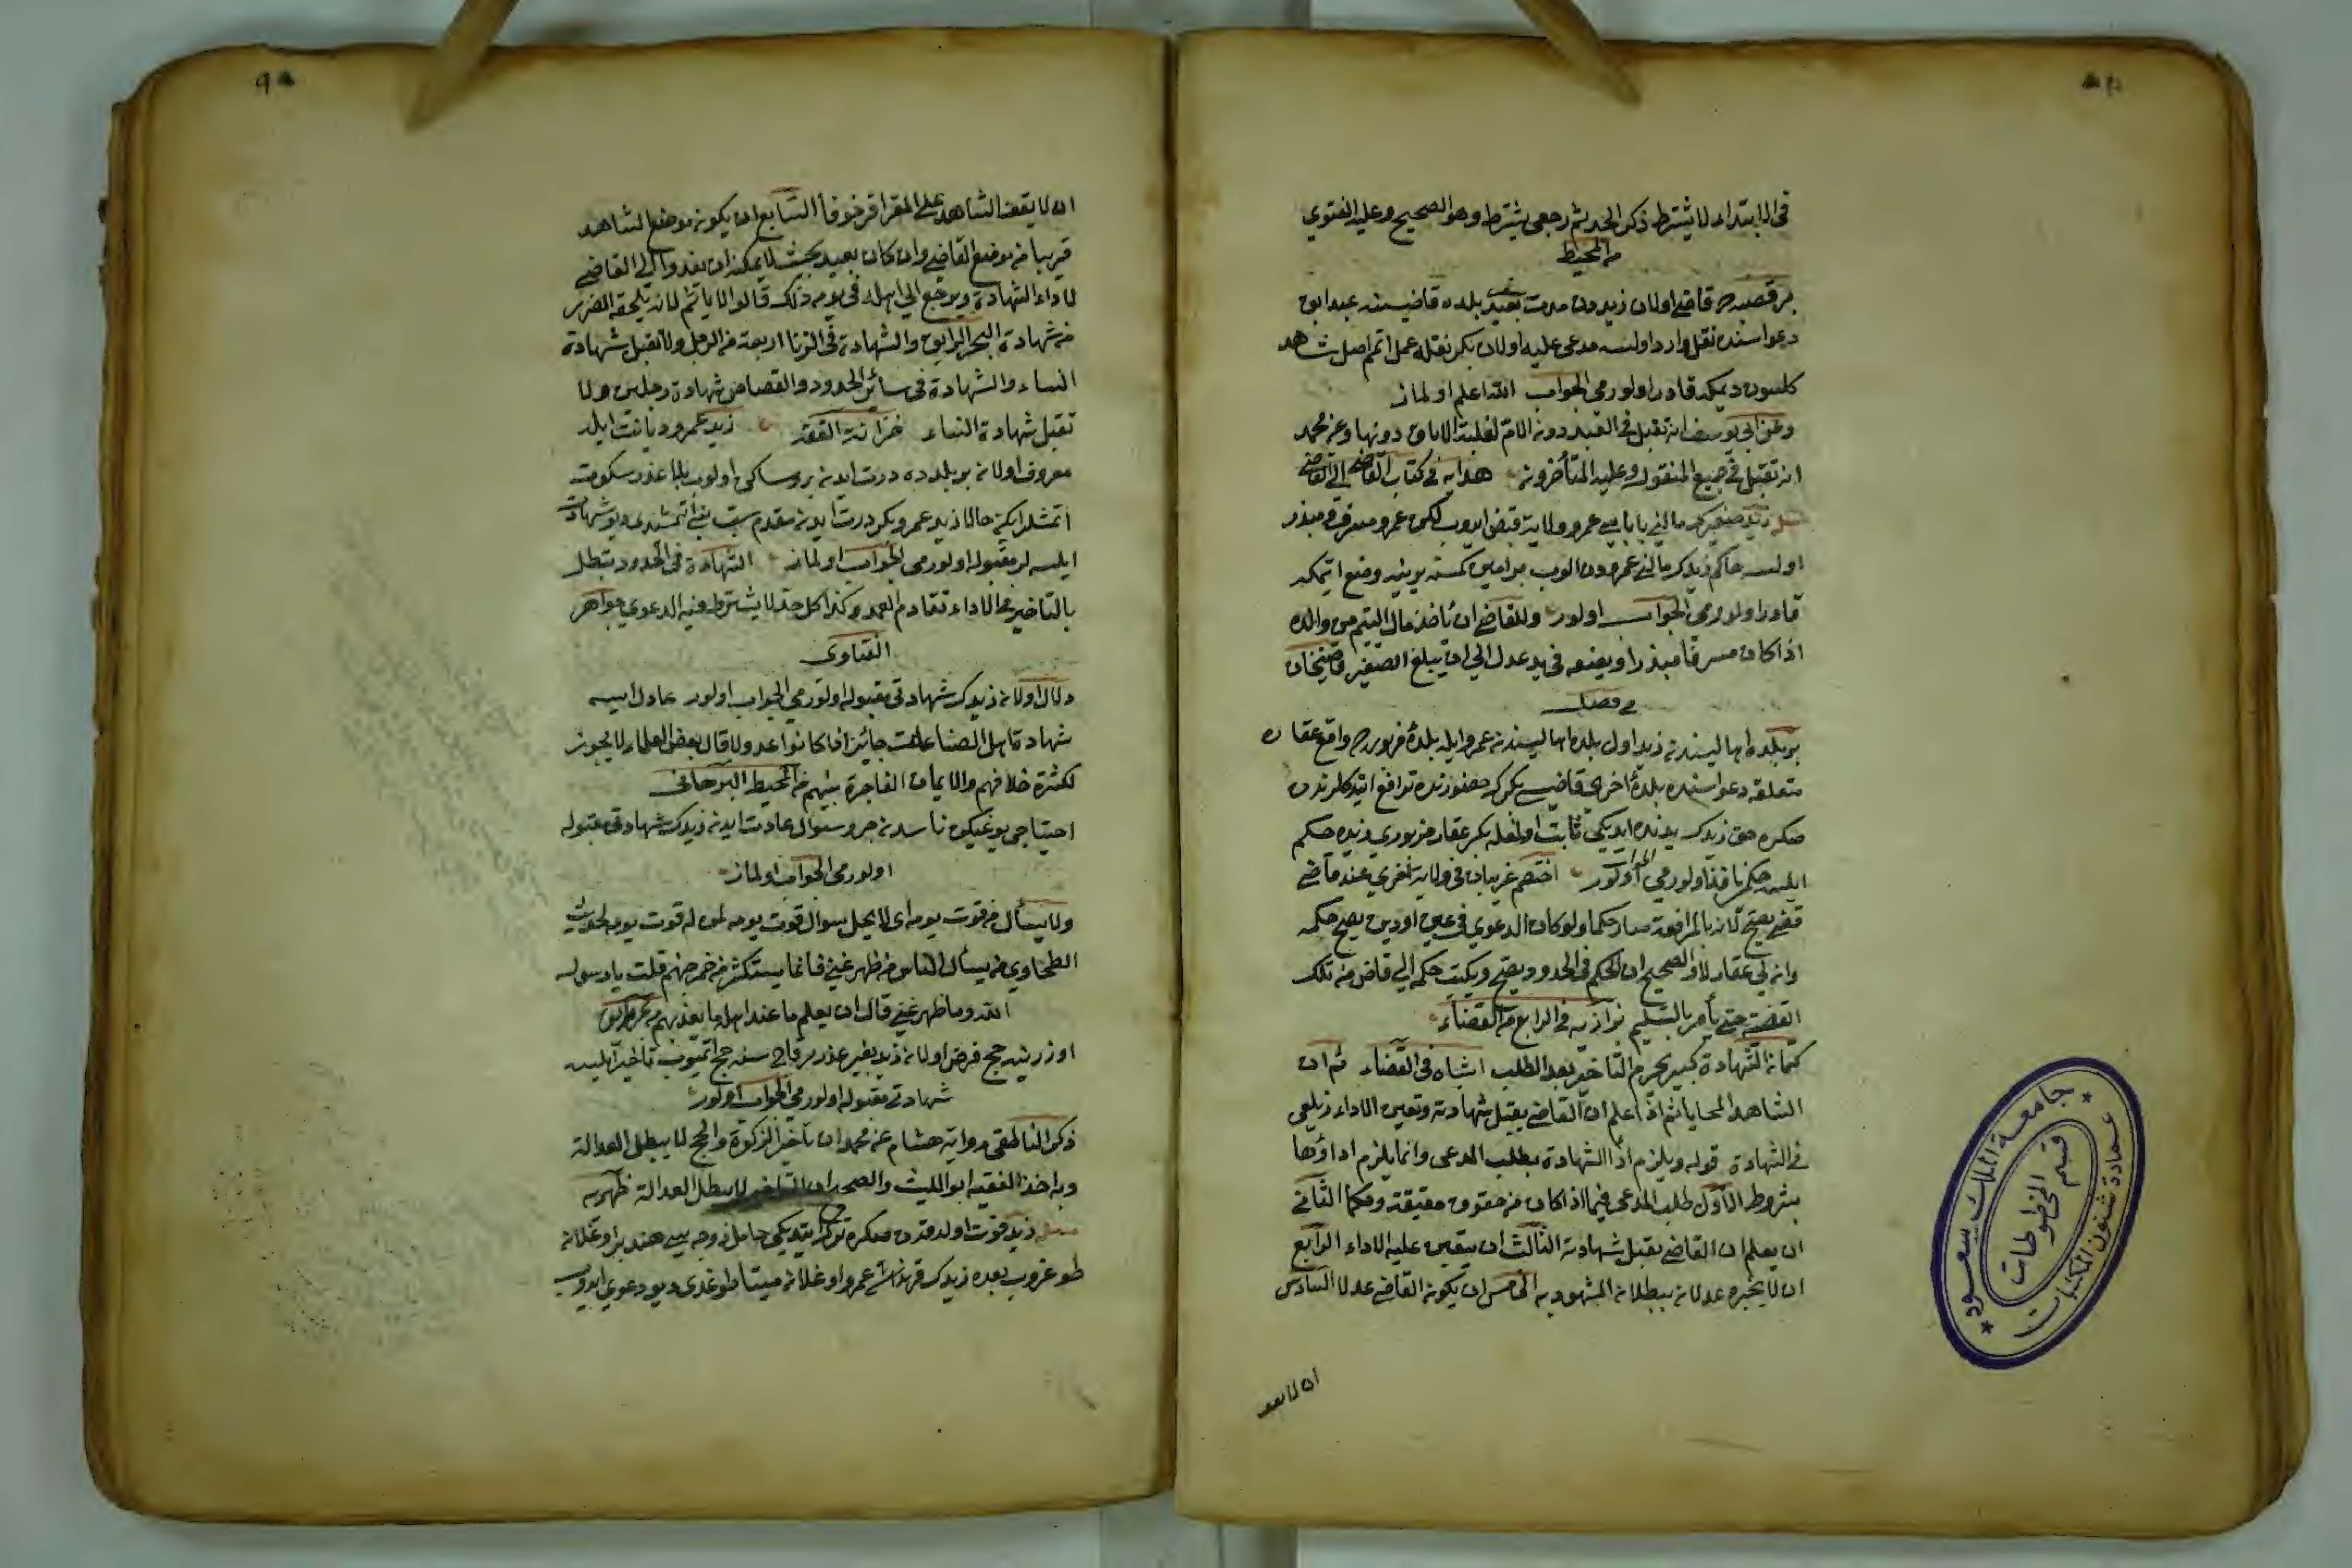 في الابتداء لا يشترط ذكر الحد ثم رجعي يشترط وهو الصحيح وعليه الفتوي
من المحيط
بر قصبه ده قاضي اولان زيددن مدت بعيد بلده قاضيسنه عبد ابق
دعواسنده نقل وارد اولسه مدعى عليه اولان بكر نقله عمل اتم اصل شاهد
كلسون ديمكه قادر اولورمى الجواب الله اعلم اولماز
وعن ابى يوسف انه تقبل في العبد دون الامة لغلبة الاباق دونها وعن محمد
انه تقبل في جميع المنقول وعليه المتأخرون هدايه في كتاب القاضي الى القاضي
زيد صغيرك مالني باباسي عمرو ولاية قبض ايدوب لكن عمرو مسرف ومبذر
اولسه حاكم زيدك مالني عمرودن الوب بر امين كمسنه يدينه وضع ايتمكه
قادر اولورمى الجواب اولور وللقاضي ان يأخذ مال اليتيم من والده
اذا كان مسرفا مبذرا ويضعه في يد عدل الي ان يبلغ الصغير قاضيخان
في فصل
بر بلده اهاليسندن زيد اول بلده اهاليسندن عمرو ايله بلدۀ مزبوره ده واقع عقاره
متعلقه دعواسنده بلدۀ اخرى قاضيسي بكرك حضورنده ترافع ايتدكلرندن
صكره حق زيدك يدنده ايديكي ثابت اولمغله بكر عقار مزبوري زيده حكم
ايلسه حكم نافذ اولورمي الجواب اولور اختصم غريبان في ولاية اخرى عند قاضي
فقضى يصح لانه بالمرافعة صار حكما ولو كان الدعوي في عين او دين يصح حكمه
وان في عقار لا والصحيح ان الحكم في الحدود يصح ويكتب حكمه الي قاض من تلك
القصبة حتى يأمر بالتسليم بزازيه في الرابع من القضاء
كتمان الشهادة كبيرة يحرم التأخير بعد الطلب اشباه في القضاء ثم ان
الشاهد انما يأثم اذا علم ان القاضي يقبل شهادته وتعين الاداء زيلعي
في الشهادة قوله ويلزم اداالشهادة بطلب المدعى وانما يلزم اداؤها
بشروط الاول طلب المدعى فيما اذا كان من حقوق حقيقة وحكما الثاني
ان يعلم ان القاضي يقبل شهادته الثالث ان يتعين عليه الاداء الرابع
ان لا يخبره عدلان ببطلان المشهود به الخامس ان يكون القاضي عدلا السادس
ان لا يقف
جامعة الملك سعود
قسم المخطوطات
عمادة شئون المكتبات
ان لا يقف الشاهد على المقر اقر خوفا السابع ان يكون موضع الشاهد
قريبا من موضع القاضي وان كان بعيد بحيث لا يمكنه ان يغدوا الى القاضي
لاداء الشهادة ويرجع الي اهله في يومه ذلك قالوا لا يأثم لانه يلحقه الضرر
من شهادة البحر الرايق والشهادة في الزنا اربعة من الرجل ولا تقبل شهادة
النساء والشهادة في سائر الحدود والقصاص شهادة رجلين ولا
تقبل شهادة النساء خزانة الفقه زيد عمرو ديانت ايله
معروف اولان بر بلده ده درت ايدنبرو ساكن اولوب بلا عذر سكوت
اتمشلر ايكن حالا زيد عمرو بكر درت ايدن مقدم اتمشدى ديو شهادت
ايلسه لر مقبوله اولورمى الجواب اولماز الشهادة في الحدود تبطل
بالتأخير في الاداء تقادم العهد وكذا كل حد لا يشترط فيه الدعوي جواهر
الفتاوى
دلال اولان زيدك شهادتى مقبوله اولورمي الجواب اولور عادل ايسه
شهادة اهل الصناعات جائز اذا كانوا عدولا قال بعض العلماء لا يجوز
لكثرة خلافهم والايمان الفاجرة بينهم من المحيط البرهانى
احتياجى يوغيكن ناسدن جر وسؤال عادت ايدن زيدك شهادتى مقبوله
اولورمى الجواب اولماز
ولا يسأل من قوت يومه اى لا يحل سوال قوت يومه لمن له قوت يومه لحديث
الطحاوي من يسأل الناس من ظهر غنى فانما يستكثر من جمر جهنم قلت يا رسول
الله وما ظهر غنى قال ان يعلم ما عند اهله ما يغذيهم من بحر الرايق
اوزرينه حج فرض اولان زيد بغير عذر بر قاج سنه حج اتميوب تأخير ايلسه
شهادتى مقبوله اولورمى الجواب اولور
ذكر الناطفى رواية هشام عن محمد ان تأخير الزكوة والحج لا يبطل العدالة
وبه اخذ الفقيه ابو الليث والصحيح ان التأخير لا يبطل العدالة ظهيريه
زيد فوت اولدقدن صكره ترك ايتديكى حامل زوجه سي هند بر اوغلان
طوغروب بعده زيدك قرنداشى عمرو اوغلان ميتا طوغدى ديو دعوي ايدوب